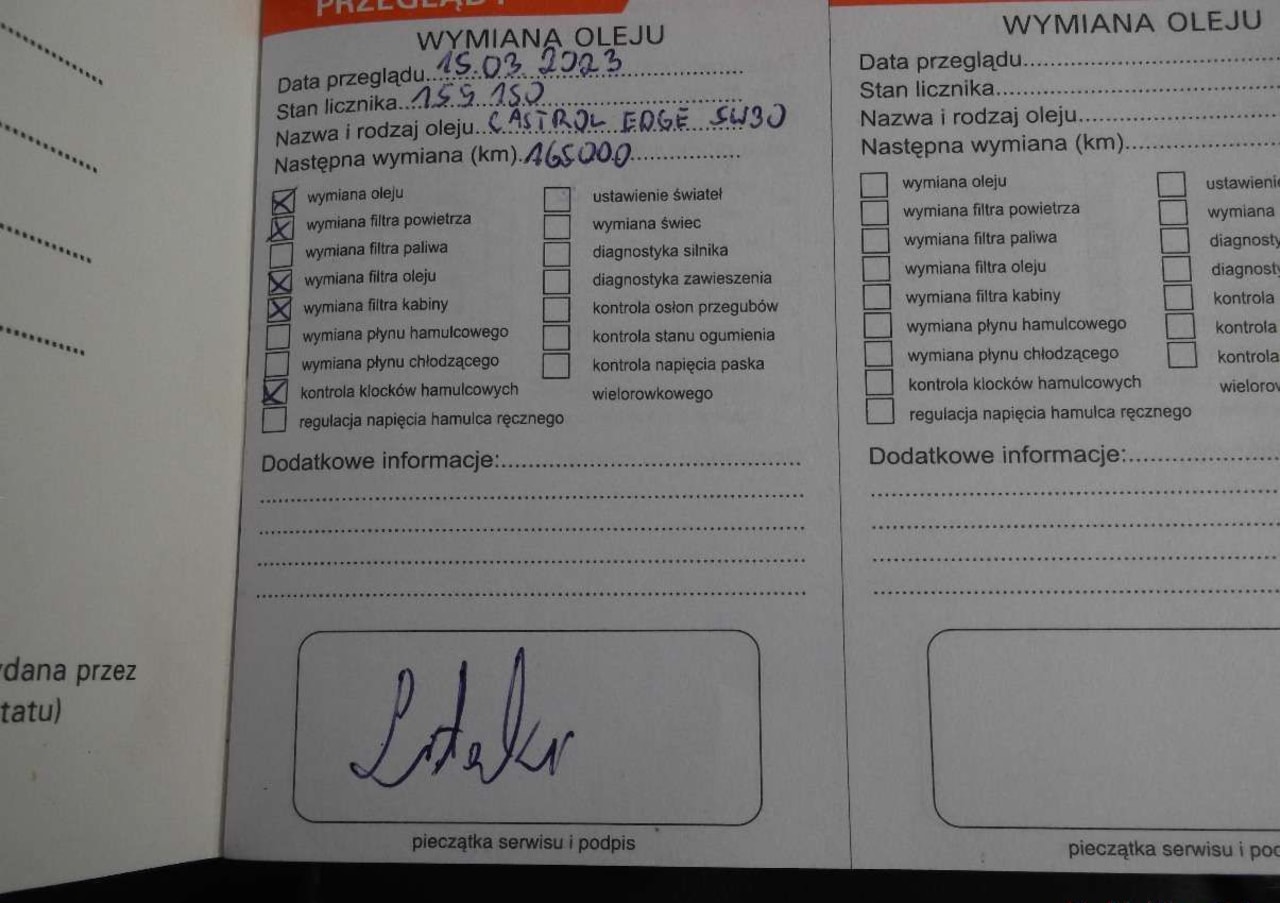 WYMIANA OLEJU
Data przeglądu..15.03.2023
Stan licznika..155 150
Nazwa i rodzaj oleju..CASTROL EDGE 5W30
Następna wymiana (km).165000
wymiana oleju
wymiana filtra powietrza
wymiana filtra paliwa
wymiana filtra oleju
wymiana filtra kabiny
wymiana płynu hamulcowego
wymiana płynu chłodzącego
kontrola klocków hamulcowych
regulacja napięcia hamulca ręcznego
ustawienie świateł
wymiana świec
diagnostyka silnika
diagnostyka zawieszenia
kontrola osłon przegubów
kontrola stanu ogumienia
kontrola napięcia paska
wielorowkowego
Dodatkowe informacje:
pieczątka serwisu i podpis
WYMIANA OLEJU
Data przeglądu
Stan licznika
Nazwa i rodzaj oleju
Następna wymiana (km)
wymiana oleju
wymiana filtra powietrza
wymiana filtra paliwa
wymiana filtra oleju
wymiana filtra kabiny
wymiana płynu hamulcowego
wymiana płynu chłodzącego
kontrola klocków hamulcowych
regulacja napięcia hamulca ręcznego
ustawienie
wymiana
diagnosty
diagnosty
kontrola
kontrola
kontrola
wielorow
Dodatkowe informacje:
pieczątka serwisu i pod
ydana przez
tatu)